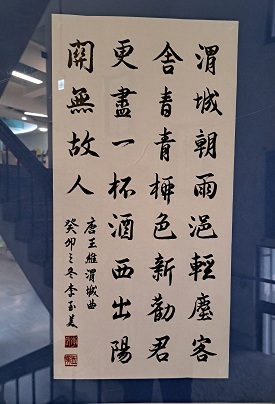 渭城朝雨浥輕塵客
舍青青柳色新勸君
更盡一杯酒西出陽
關無故人
唐王維渭城曲
癸卯之冬李玉美